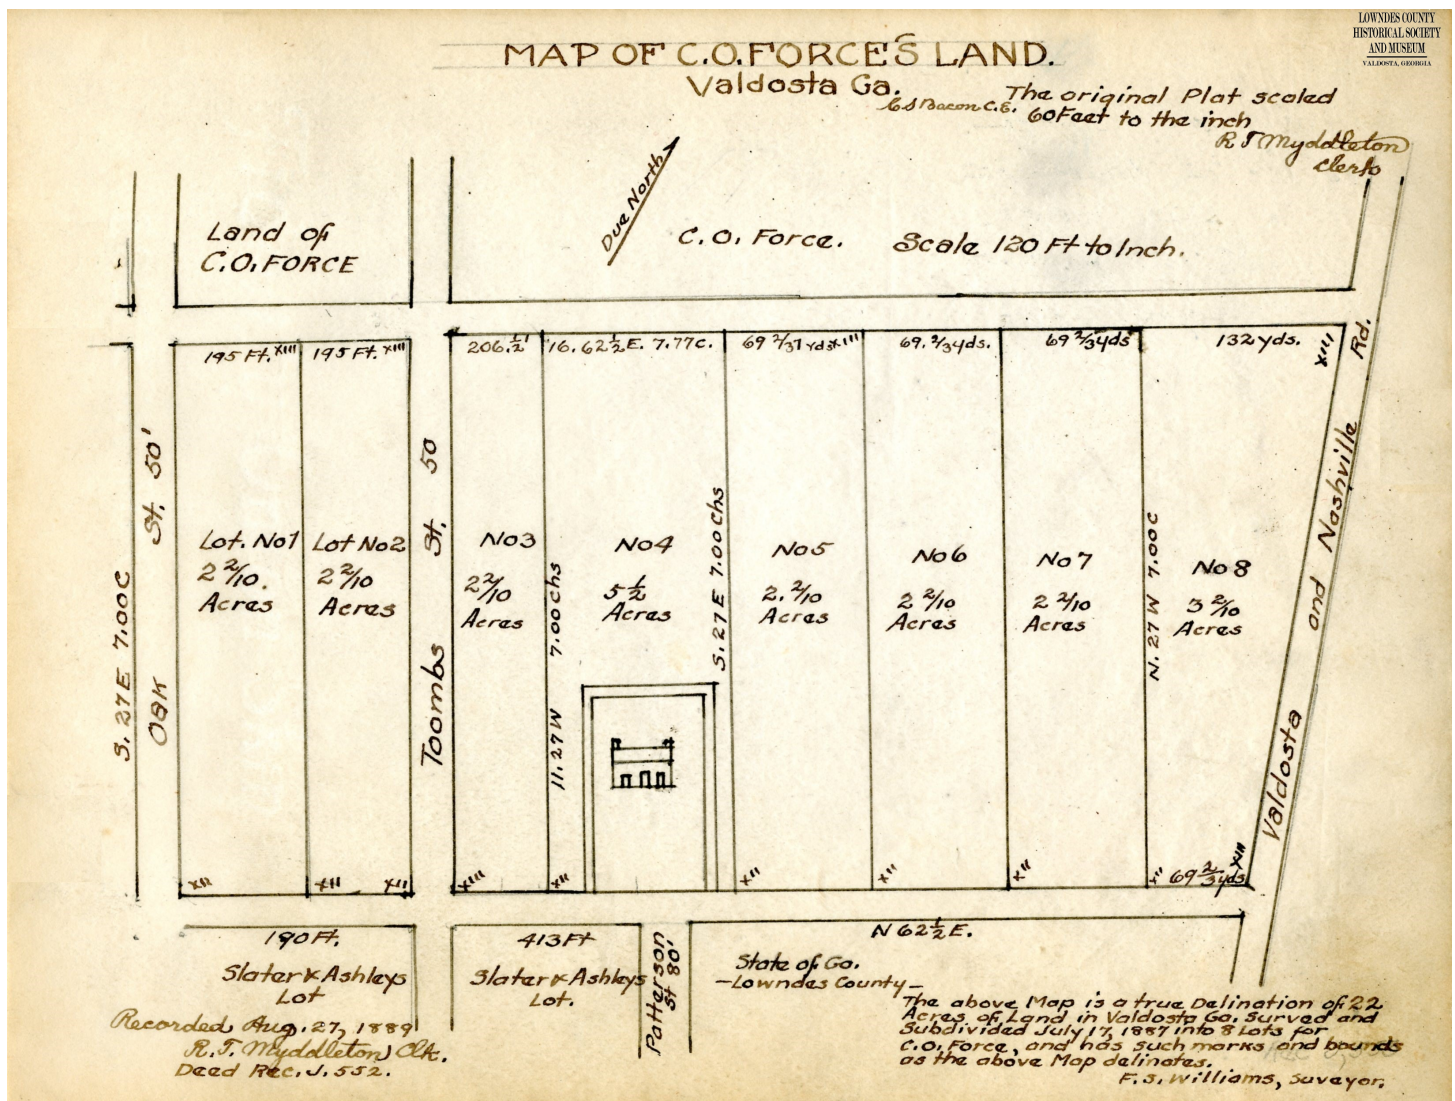 LOWNDES COUNTY
HISTORICAL SOCIETY
AND MUSEUM
VALDOSTA, GEORGIA
MAP OF C.O. FORCE'S LAND.
Valdosta Ga.
C S Bacon C.E.
The original Plat scaled
60 Feet to the inch
R T Myddleton
Clerk
Due North
Land of
C.O. FORCE
C. O. Force. Scale 120 Ft to Inch.
195 Ft. XIII
195 Ft. XIII
206.½'
16. 62½ E. 7.77 C.
69 2/37 yds XIII
69. 2/3 yds.
69 2/3 yds
132 yds.
XIII
S. 27 E 7.00 C
OAK St. 50'
Lot. No 1
2 2/10.
Acres
Lot No 2
2 2/10
Acres
Toombs St. 50
No 3
2 2/10
Acres
11. 27 W 7.00 Chs
No 4
5½
Acres
S. 27 E 7.00 Chs
No 5
2. 2/10
Acres
No 6
2 2/10
Acres
No 7
2 2/10
Acres
N. 27 W 7.00 C
No 8
3 2/10
Acres
Valdosta and Nashville Rd.
XII
XII
XII
XIII
XII
XII
XII
XII
XII
69 2/3 yds
XIII
190 Ft.
Slater & Ashleys
Lot
413 Ft
Slater & Ashleys
Lot.
Patterson
St 80'
N 62½ E.
State of Ga.
-Lowndes County-
The above Map is a true Delination of 22
Acres of Land in Valdosta Ga. Surved and
Subdivided July 17, 1887 into 8 Lots for
C.O. Force, and has such marks and bounds
as the above Map delinates.
F. S. Williams, Suveyor.
Recorded Aug. 27, 1889
R. T. Myddleton Clk.
Deed Rec. J. 552.